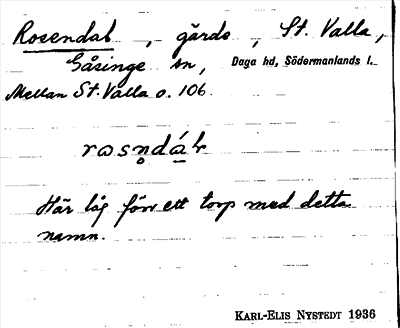 Rosendal, gärde, St. Valla,
Gåsinge sn, Daga hd, Södermanlands l.
Mellan St. Valla o. 106.
Här låg förr ett torp med detta
namn.
KARL-ELIS NYSTEDT 1936